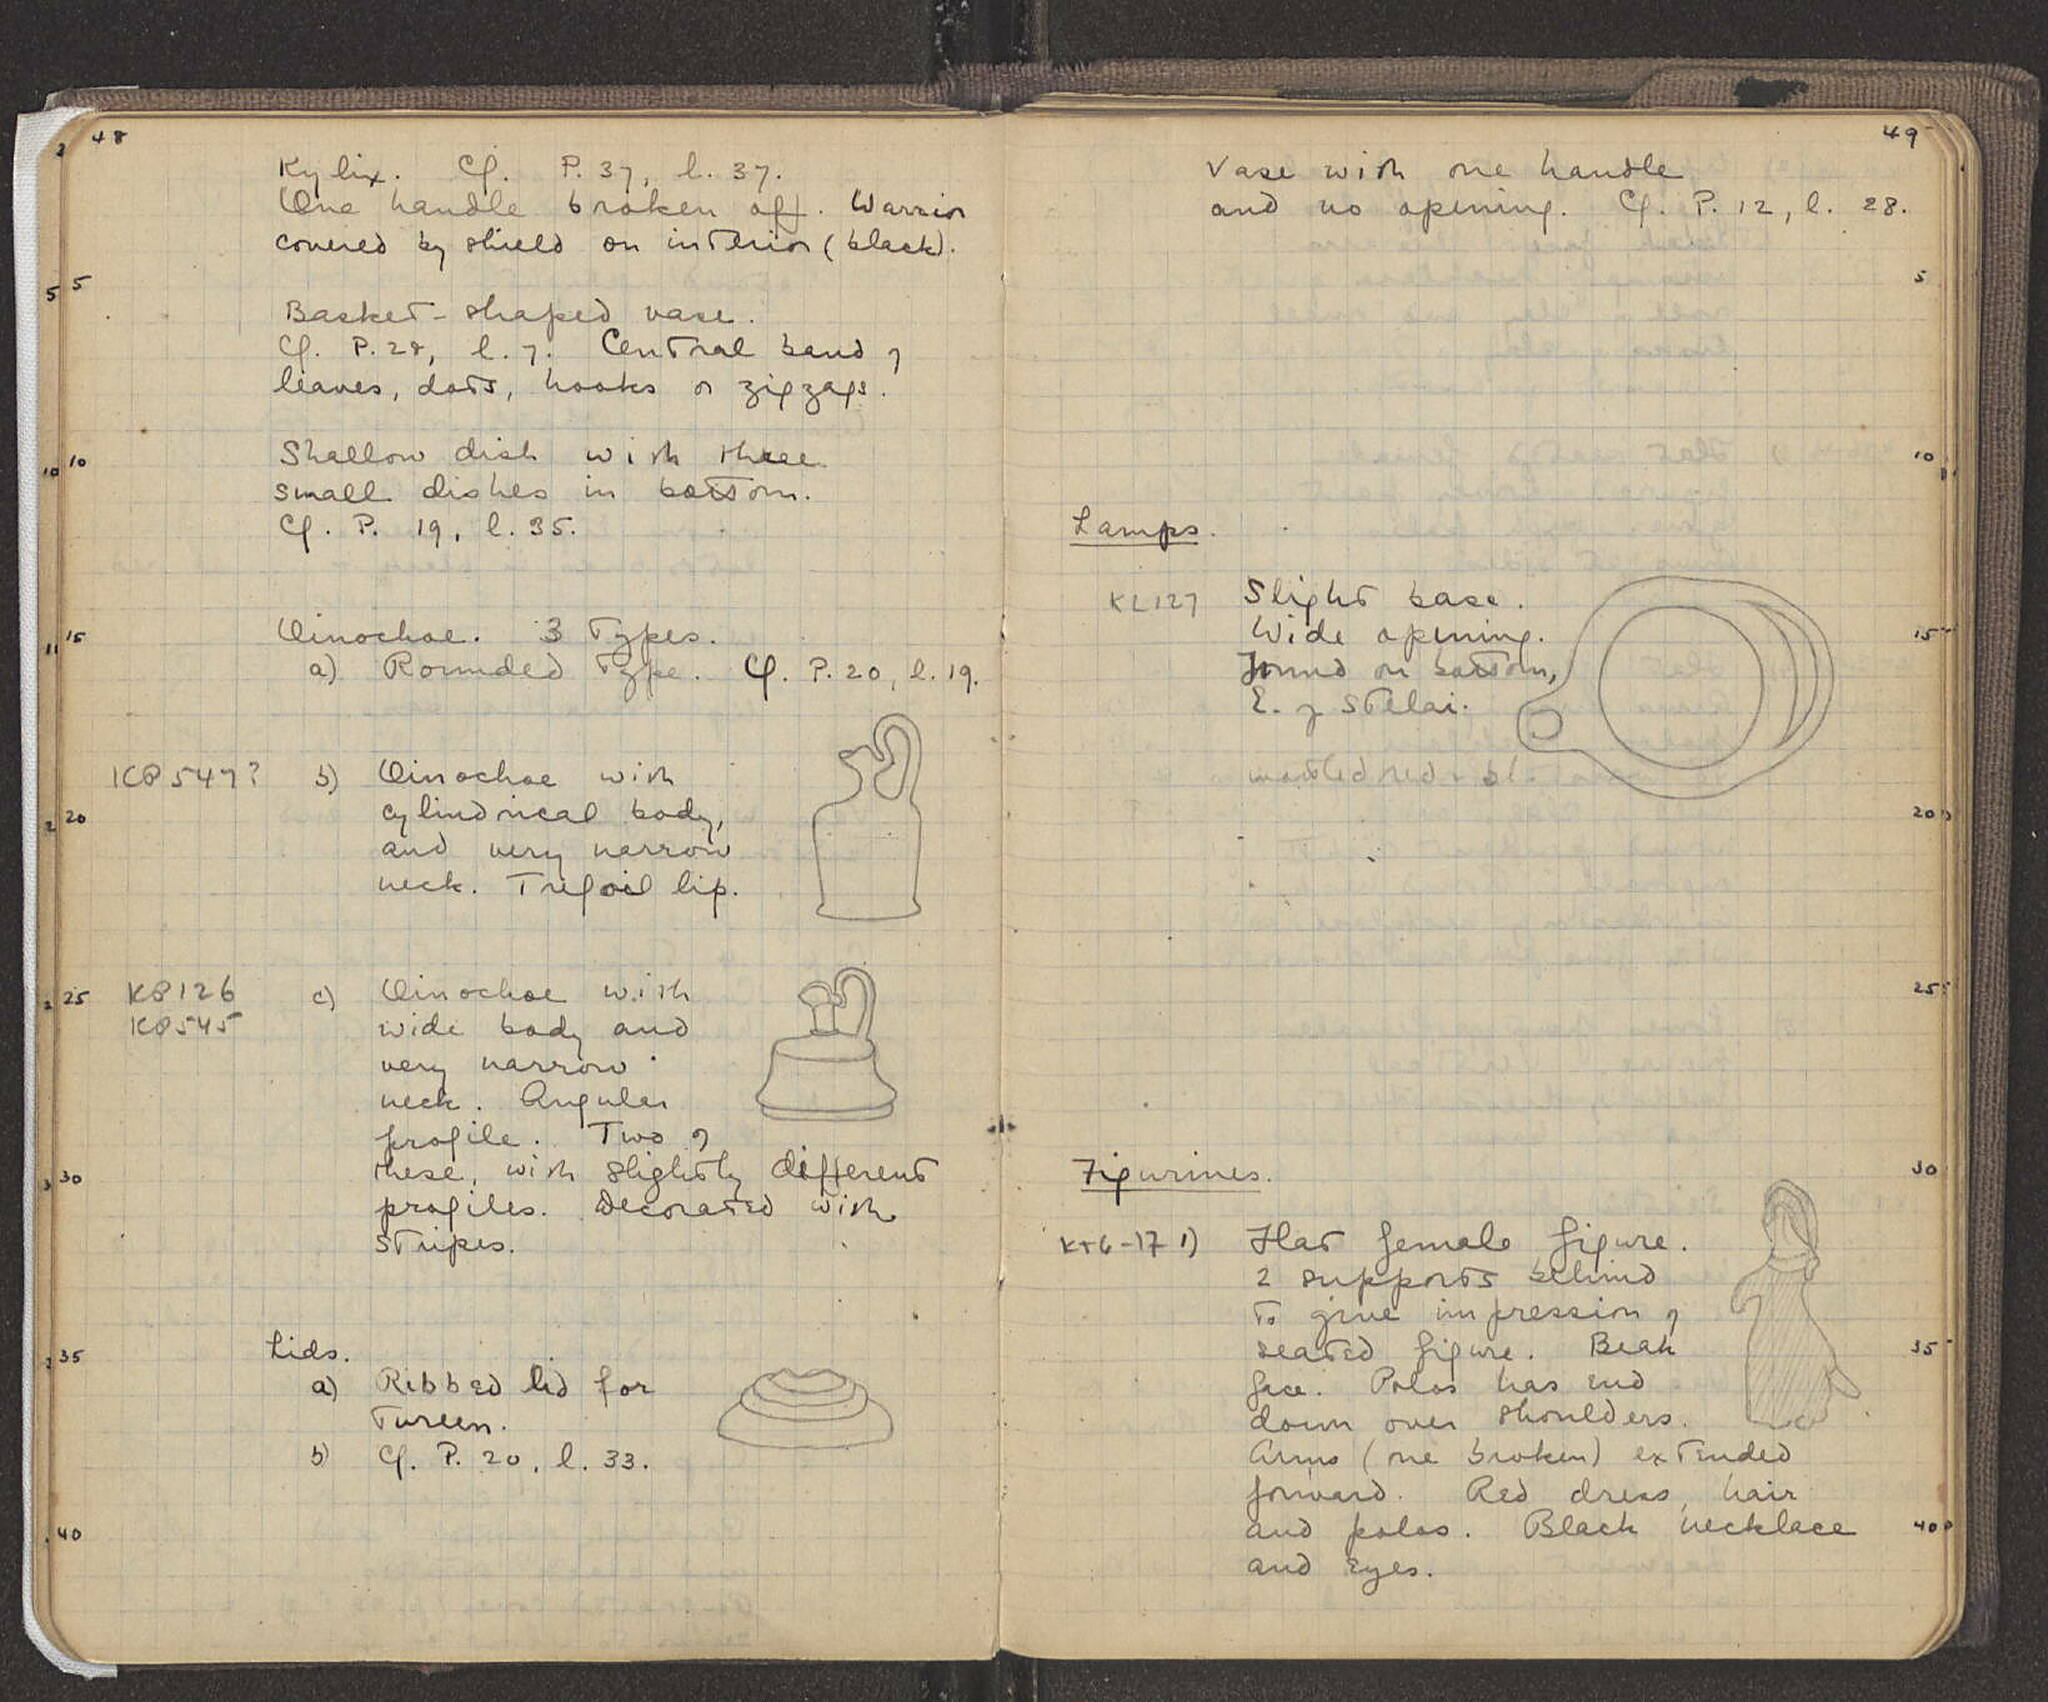 48
Kylix. Cf. P. 37, l. 37.
One handle broken off. Warrior
covered by shield on interior (black).
5
Basket-shaped vase.
Cf. P. 28, l. 7. Central band of
leaves, dots, hooks or zigzags.
10
Shallow dish with three
small dishes in bottom.
Cf. P. 19, l. 35.
15
Oinochoe. 3 Types.
a) Rounded Type. Cf. P. 20, l. 19.
KP547? b) Oinochoe with
cylindrical body,
20
and very narrow
neck. Trefoil lip.
25 KP126 c) Oinochoe with
KP545 wide body and
very narrow
neck. Angular
profile. Two of
30 these, with slightly different
profiles. Decorated with
stripes.
35 Lids.
a) Ribbed lid for
Tureen.
b) Cf. P. 20, l. 33.
40
49
Vase with one handle
and no opening. Cf. P. 12, l. 28.
5
10
Lamps.
KL127 Slight base.
Wide opening. 15
Found on bottom,
E. of Stelai.
mottled red + bl.
20
25
Figurines. 30
KT6-17 1) Flat female figure.
2 supports behind
to give impression of
seated figure. Beak 35
face. Polos has end
down over shoulders.
Arms (one broken) extended
forward. Red dress, hair
and polos. Black necklace 40
and eyes.